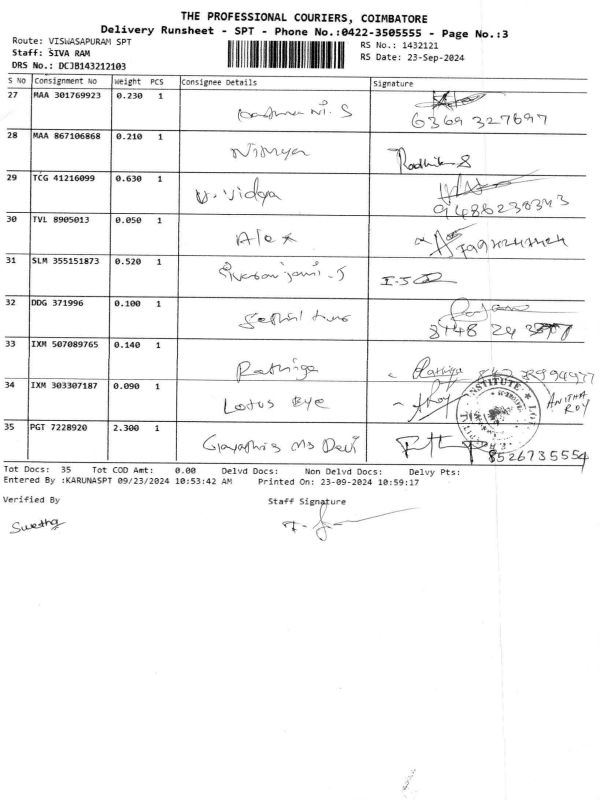 THE PROFESSIONAL COURIERS, COIMBATORE
Delivery Runsheet - SPT - Phone No.:0422-3505555 - Page No.:3
Route: VISWASAPURAM SPT
RS No.: 1432121
Staff: SIVA RAM
RS Date: 23-Sep-2024
DRS No.: DCJB143212103
S No Consignment No Weight PCS Consignee Details Signature
27 MAA 301769923 0.230 1
6369 327697
28 MAA 867106868 0.210 1 Nithya Radhika S
29 TCG 41216099 0.630 1 V. Vidya
9486230343
30 TVL 8905013 0.050 1 Alex
31 SLM 355151873 0.520 1 Sivaranjani. S
32 DDG 371996 0.100 1
33 IXM 507089765 0.140 1 Rathiga Rathiga
34 IXM 303307187 0.090 1 Lotus Eye Roy ANITHA ROY
INSTITUTE
35 PGT 7228920 2.300 1 Gayathri Ms Devi
8526735554
Tot Docs: 35 Tot COD Amt: 0.00 Delvd Docs: Non Delvd Docs: Delvy Pts:
Entered By :KARUNASPT 09/23/2024 10:53:42 AM Printed On: 23-09-2024 10:59:17
Verified By Staff Signature
Swetha